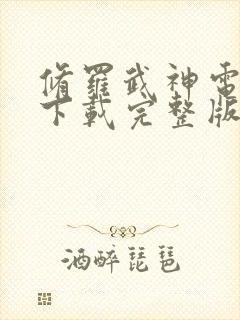 脩羅武神電
下載完整版
酒醉琵琶